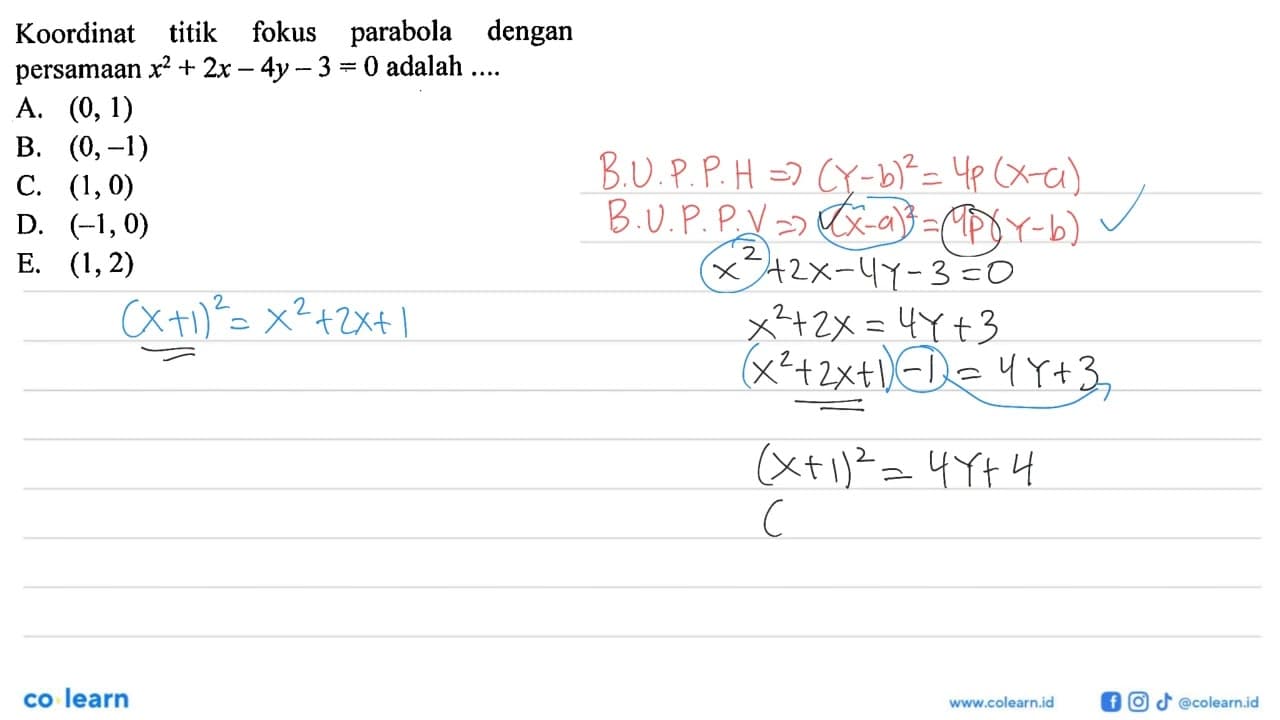 Koordinat titik fokus parabola dengan
persamaan x² + 2x – 4y – 3 = 0 adalah ....
A. (0, 1)
B. (0, –1)
C. (1, 0)
D. (–1, 0)
E. (1, 2)
B.U.P.P.H => (Y-b)² = 4p (x-a)
B.U.P.P.V => (x-a)² = 4p (Y-b) ✓
x² +2x-4Y-3=0
(x+1)² = x²+2x+1
x²+2x = 4Y+3
(x²+2x+1) -1 = 4Y+3
(x+1)² = 4Y+4
(
co learn
www.colearn.id
@colearn.id